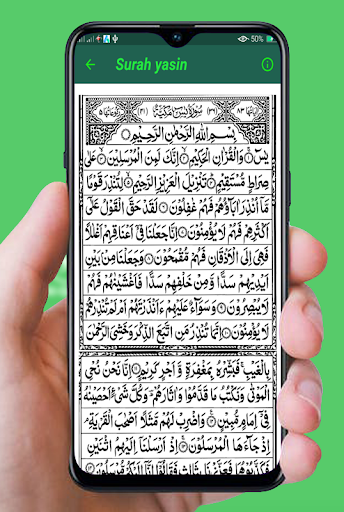 50%
Surah yasin
اٰیاتها ٨٣ (٣٦) سُوْرَةُ يٰسٓ مَكِّيَّةٌ (٤١) رکوعاتها ٥
بِسْمِ اللّٰهِ الرَّحْمٰنِ الرَّحِيْمِ
يٰسٓ۝ وَالْقُرْاٰنِ الْحَكِيْمِ۝ اِنَّكَ لَمِنَ الْمُرْسَلِيْنَ۝ عَلٰى
صِرَاطٍ مُّسْتَقِيْمٍ۝ تَنْزِيْلَ الْعَزِيْزِ الرَّحِيْمِ۝ لِتُنْذِرَ قَوْمًا
مَّاۤ اُنْذِرَ اٰبَآؤُهُمْ فَهُمْ غٰفِلُوْنَ۝ لَقَدْ حَقَّ الْقَوْلُ عَلٰۤى
اَكْثَرِهِمْ فَهُمْ لَا يُؤْمِنُوْنَ۝ اِنَّا جَعَلْنَا فِيْۤ اَعْنَاقِهِمْ اَغْلٰلًا
فَهِيَ اِلَى الْاَذْقَانِ فَهُمْ مُّقْمَحُوْنَ۝ وَجَعَلْنَا مِنْۢ بَيْنِ
اَيْدِيْهِمْ سَدًّا وَّمِنْ خَلْفِهِمْ سَدًّا فَاَغْشَيْنٰهُمْ فَهُمْ
لَا يُبْصِرُوْنَ۝ وَسَوَآءٌ عَلَيْهِمْ ءَاَنْذَرْتَهُمْ اَمْ لَمْ تُنْذِرْهُمْ
لَا يُؤْمِنُوْنَ۝ اِنَّمَا تُنْذِرُ مَنِ اتَّبَعَ الذِّكْرَ وَخَشِيَ الرَّحْمٰنَ
بِالْغَيْبِ فَبَشِّرْهُ بِمَغْفِرَةٍ وَّاَجْرٍ كَرِيْمٍ۝ اِنَّا نَحْنُ نُحْيِ
الْمَوْتٰى وَنَكْتُبُ مَا قَدَّمُوْا وَاٰثَارَهُمْ وَكُلَّ شَيْءٍ اَحْصَيْنٰهُ
فِيْۤ اِمَامٍ مُّبِيْنٍ۝ وَاضْرِبْ لَهُمْ مَّثَلًا اَصْحٰبَ الْقَرْيَةِ
اِذْ جَآءَهَا الْمُرْسَلُوْنَ۝ اِذْ اَرْسَلْنَاۤ اِلَيْهِمُ اثْنَيْنِ
فَكَذَّبُوْهُمَا فَعَزَّزْنَا بِثَالِثٍ فَقَالُوْۤا اِنَّاۤ اِلَيْكُمْ مُّرْسَلُوْنَ